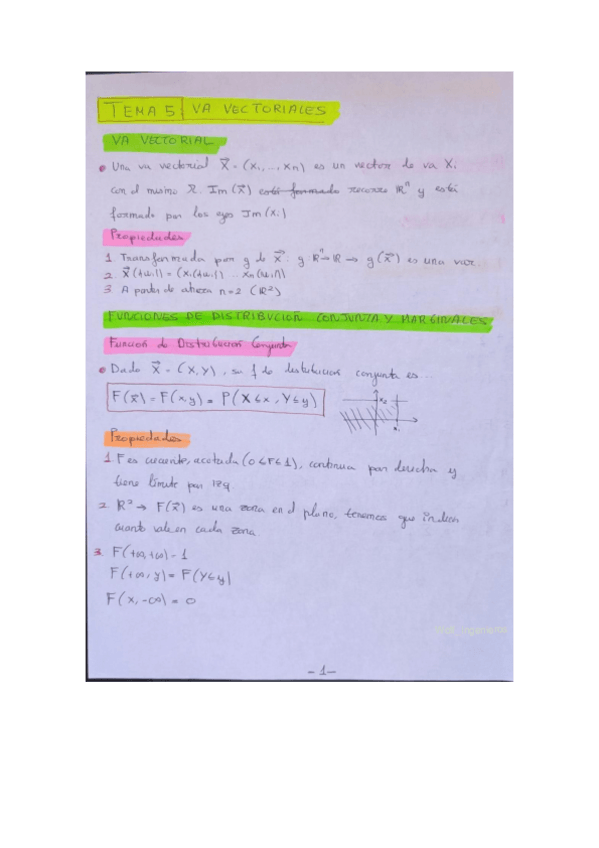 TEMA 5 VA VECTORIALES
VA VECTORIAL
• Una va vectorial X⃗ = (X₁, ..., Xn) es un vector de va Xi
con el mismo Ω. Im(X⃗) está formado recorre ℝⁿ y está
formado por los ejes Im(Xi)
Propiedades
1. Transformada por g de X⃗: g: ℝⁿ → ℝ → g(X⃗) es una var.
2. X⃗({ωi}) = (X1({ωi}) ... Xn({ωi}))
3 A partir de ahora n=2 (ℝ²)
FUNCIONES DE DISTRIBUCIÓN CONJUNTA Y MARGINALES
Función de Distribución Conjunta
• Dado X⃗ = (X,Y), su f de distribución conjunta es...
F(x⃗) = F(x,y) = P(X≤x, Y≤y)
Propiedades
1 F es creciente, acotada (0≤F≤1), continua por derecha y
tiene límite por izq.
2. ℝ² → F(x⃗) es una zona en el plano, tenemos que indicar
cuanto vale en cada zona.
3. F(+∞,+∞) = 1
F(+∞, y) = F(Y≤y)
F(x, -∞) = 0
- 1 -